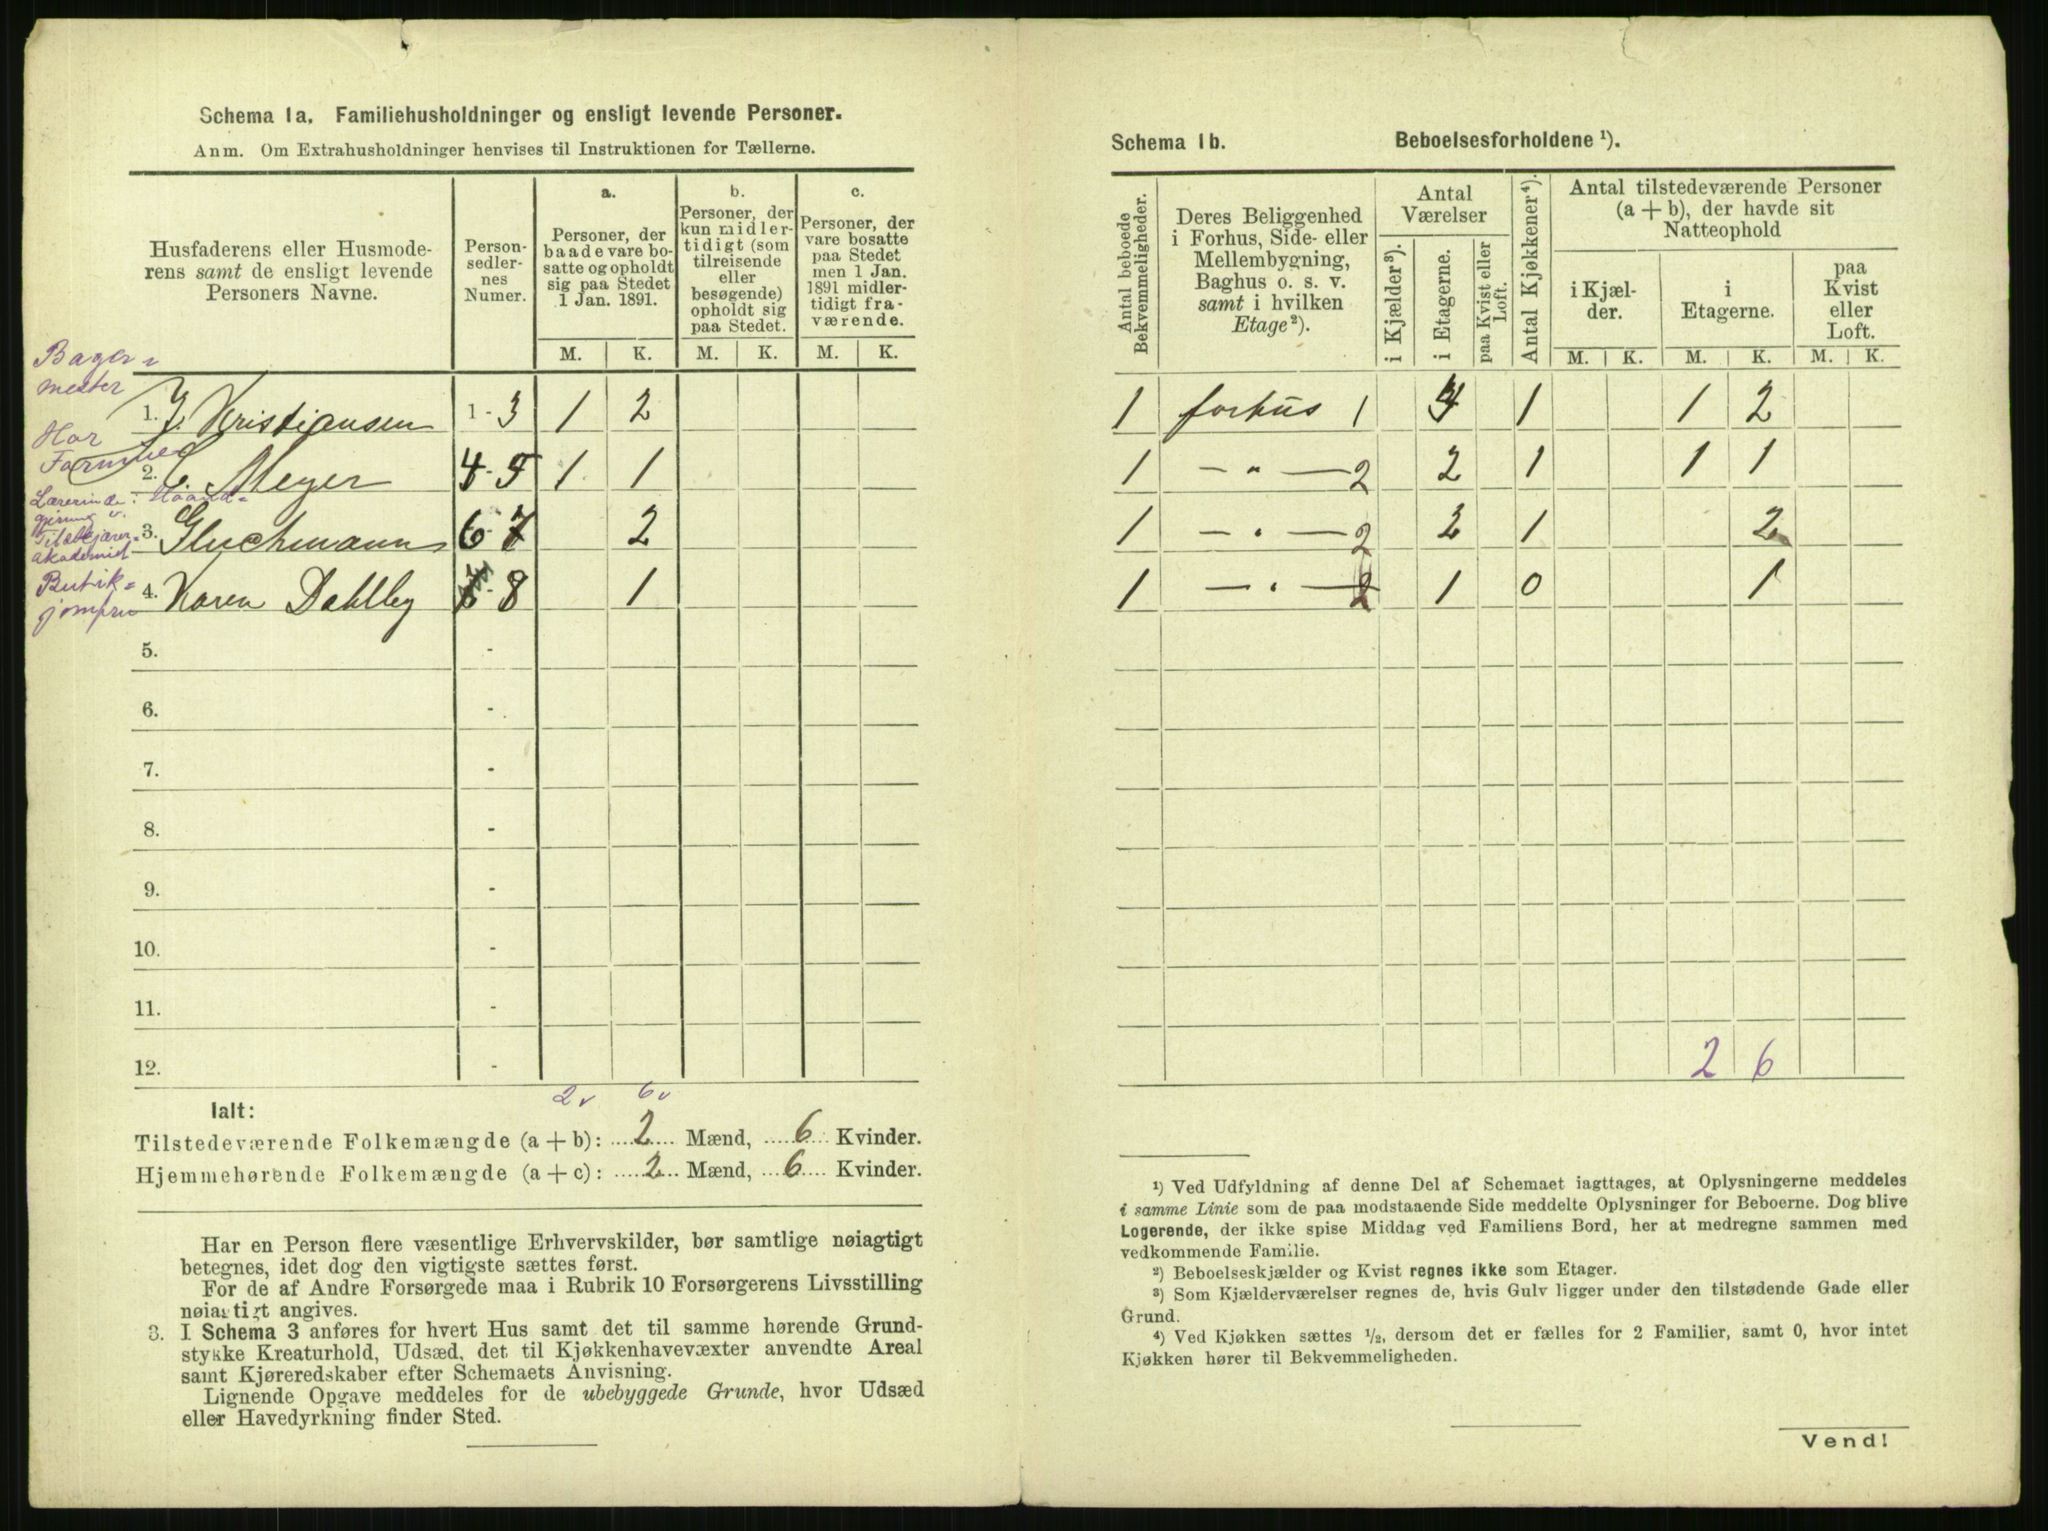 Schema 1a. Familiehusholdninger og ensligt levende Personer.
Anm. Om Extrahusholdninger henvises til Instruktionen for Tællerne.
Husfaderens eller Husmode-
rens samt de ensligt levende
Personers Navne.
Person-
sedler-
nes
Numer.
a.
Personer, der
baade vare bo-
satte og opholdt
sig paa Stedet
1 Jan. 1891.
b.
Personer, der
kun midler-
tidigt (som
tilreisende
eller
besøgende)
opholdt sig
paa Stedet.
c.
Personer, der
vare bosatte
paa Stedet
men 1 Jan.
1891 midler-
tidigt fra-
værende.
M. K. M. K. M. K.
Bager-
mester
1. J. Kristiansen 1-3 1 2
Har
Formue
2. C. Meyer 4-5 1 1
Lærerinde: Haand-
gjerning v.
3. Gluckmann 6-7 2
Butik-
jomfru
4. Karen Dahlby 8 1
5. -
6. -
7. -
8. -
9. -
10. -
11. -
12. -
2v 6v
Ialt:
Tilstedeværende Folkemængde (a+b): 2 Mænd, 6 Kvinder.
Hjemmehørende Folkemængde (a+c): 2 Mænd, 6 Kvinder.
Har en Person flere væsentlige Erhvervskilder, bør samtlige nøiagtigt
betegnes, idet dog den vigtigste sættes først.
For de af Andre Forsørgede maa i Rubrik 10 Forsørgerens Livsstilling
nøiagtigt angives.
3. I Schema 3 anføres for hvert Hus samt det til samme hørende Grund-
stykke Kreaturhold, Udsæd, det til Kjøkkenhavevæxter anvendte Areal
samt Kjøreredskaber efter Schemaets Anvisning.
Lignende Opgave meddeles for de ubebyggede Grunde, hvor Udsæd
eller Havedyrkning finder Sted.
Schema 1b. Beboelsesforholdene ¹).
Antal beboede
Bekvemmeligheder.
Deres Beliggenhed
i Forhus, Side- eller
Mellembygning,
Baghus o. s. v.
samt i hvilken
Etage²).
Antal
Værelser
i Kjælder³).
i Etagerne.
paa Kvist eller
Loft.
Antal Kjøkkener⁴).
Antal tilstedeværende Personer
(a+b), der havde sit
Natteophold
i Kjæl-
der.
i
Etagerne.
paa
Kvist
eller
Loft.
M. K. M. K. M. K.
1 forhus 1 1 1 2
1 — " — 2 2 1 1 1
1 — " — 2 2 1 2
1 — " — 2 1 0 1
2 6
¹) Ved Udfyldning af denne Del af Schemaet iagttages, at Oplysningerne meddeles
i samme Linie som de paa modstaaende Side meddelte Oplysninger for Beboerne. Dog blive
Logerende, der ikke spise Middag ved Familiens Bord, her at medregne sammen med
vedkommende Familie.
²) Beboelseskjælder og Kvist regnes ikke som Etager.
³) Som Kjælderværelser regnes de, hvis Gulv ligger under den tilstødende Gade eller
Grund.
⁴) Ved Kjøkken sættes ½, dersom det er fælles for 2 Familier, samt 0, hvor intet
Kjøkken hører til Bekvemmeligheden.
Vend!